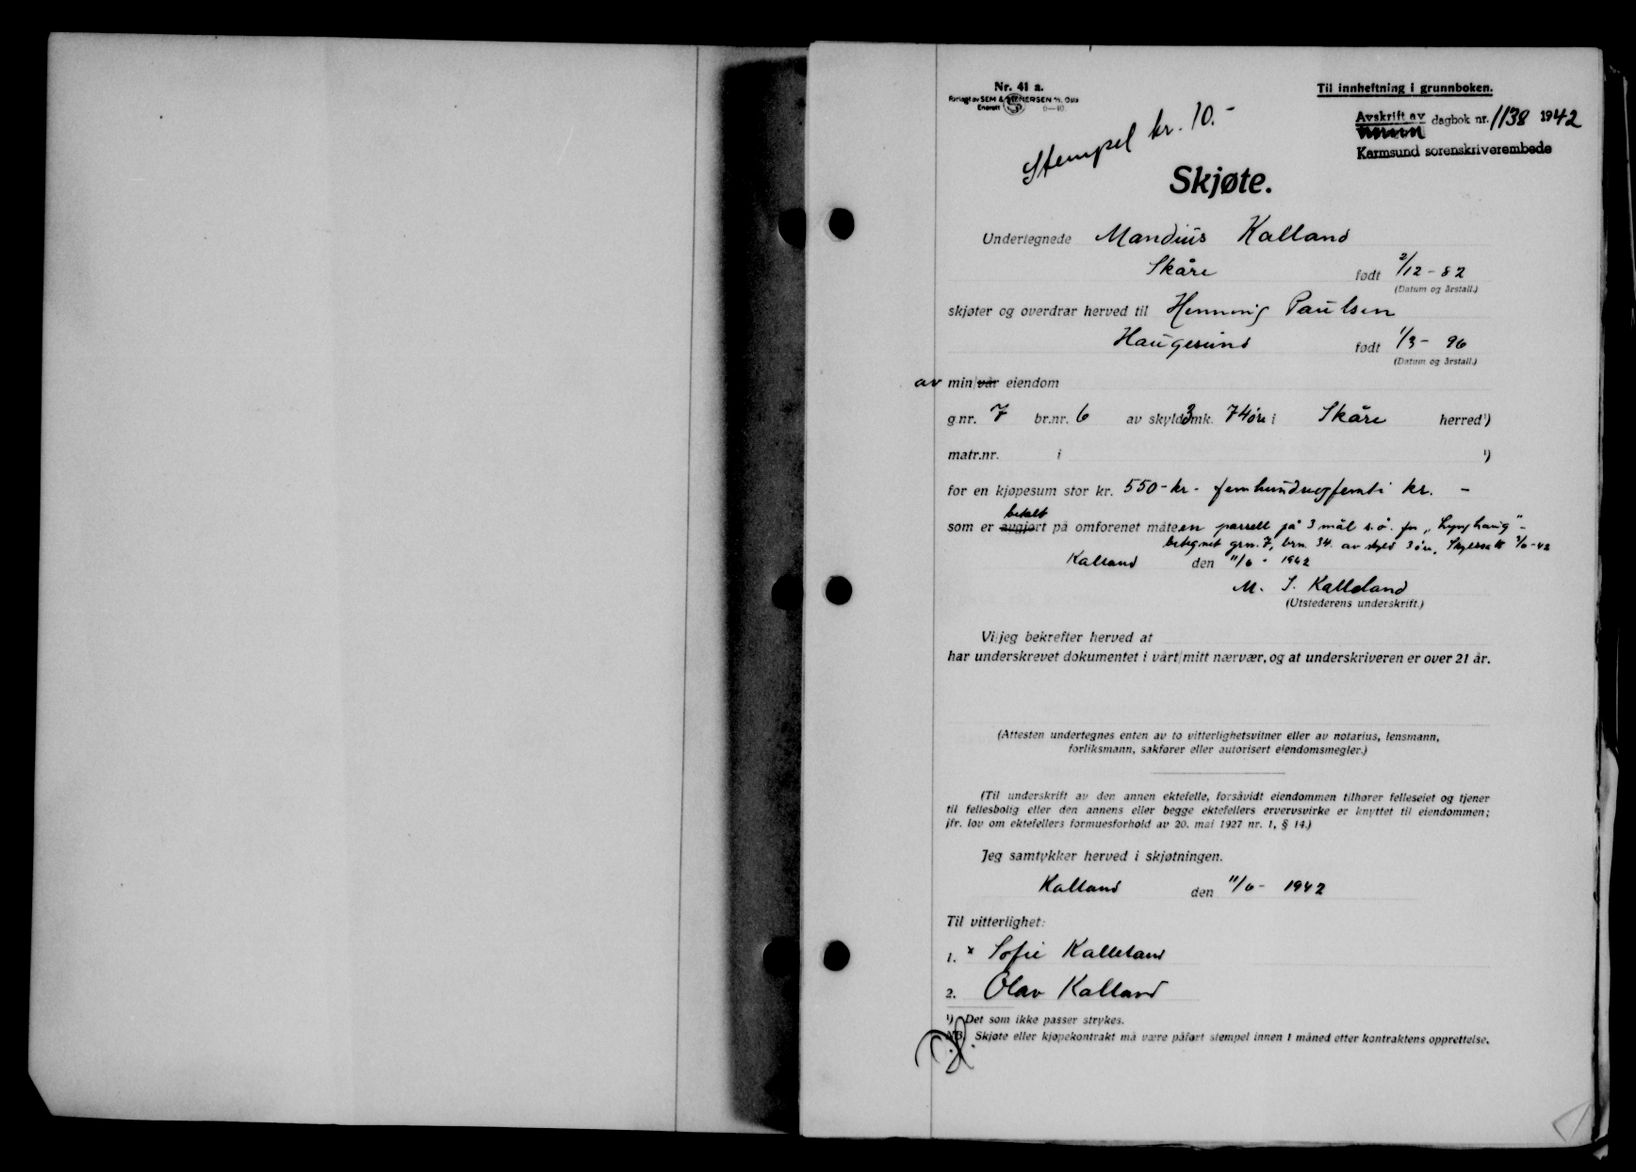 Nr. 41 a.
Forlagt av SEM & STENERSEN A/S, Oslo
Enerett 6—40
Til innheftning i grunnboken.
Avskrift av dagbok nr. 1138 1942
Karmsund sorenskriverembede
Stempel kr. 10.-
Skjøte.
Undertegnede Mandius Kalland
Skåre født 2/12-82
(Datum og årstall.)
skjøter og overdrar herved til Henning Paulsen
Haugesund født 1/3-96
(Datum og årstall.)
av min/vår eiendom
gnr. 7 br.nr. 6 av skyld 3 mk. 74 øre i Skåre herred¹)
matr.nr. i ¹)
for en kjøpesum stor kr. 550-kr- femhundreogfemti kr. -
betalt
som er avgjort på omforenet måte en parsell på 3 mål s.ø. for „Lynghaug"-
betegnet grn. 7, brn. 34. av skyld 3 øre, 3/6-42
Kalland den 11/6 - 1942
M. S. Kalleland
(Utstederens underskrift.)
Vi/jeg bekrefter herved at
har underskrevet dokumentet i vårt/mitt nærvær, og at underskriveren er over 21 år.
(Attesten undertegnes enten av to vitterlighetsvitner eller av notarius, lensmann,
forliksmann, sakfører eller autorisert eiendomsmegler.)
(Til underskrift av den annen ektefelle, forsåvidt eiendommen tilhører felleseiet og tjener
til fellesbolig eller den annens eller begge ektefellers ervervsvirke er knyttet til eiendommen;
jfr. lov om ektefellers formuesforhold av 20. mai 1927 nr. 1, § 14.)
Jeg samtykker herved i skjøtningen.
Kalland den 11/6- 1942
Til vitterlighet:
1. x Sofie Kalleland
2. Olav Kalland
¹) Det som ikke passer strykes.
NB. Skjøte eller kjøpekontrakt må være påført stempel innen 1 måned etter kontraktens opprettelse.